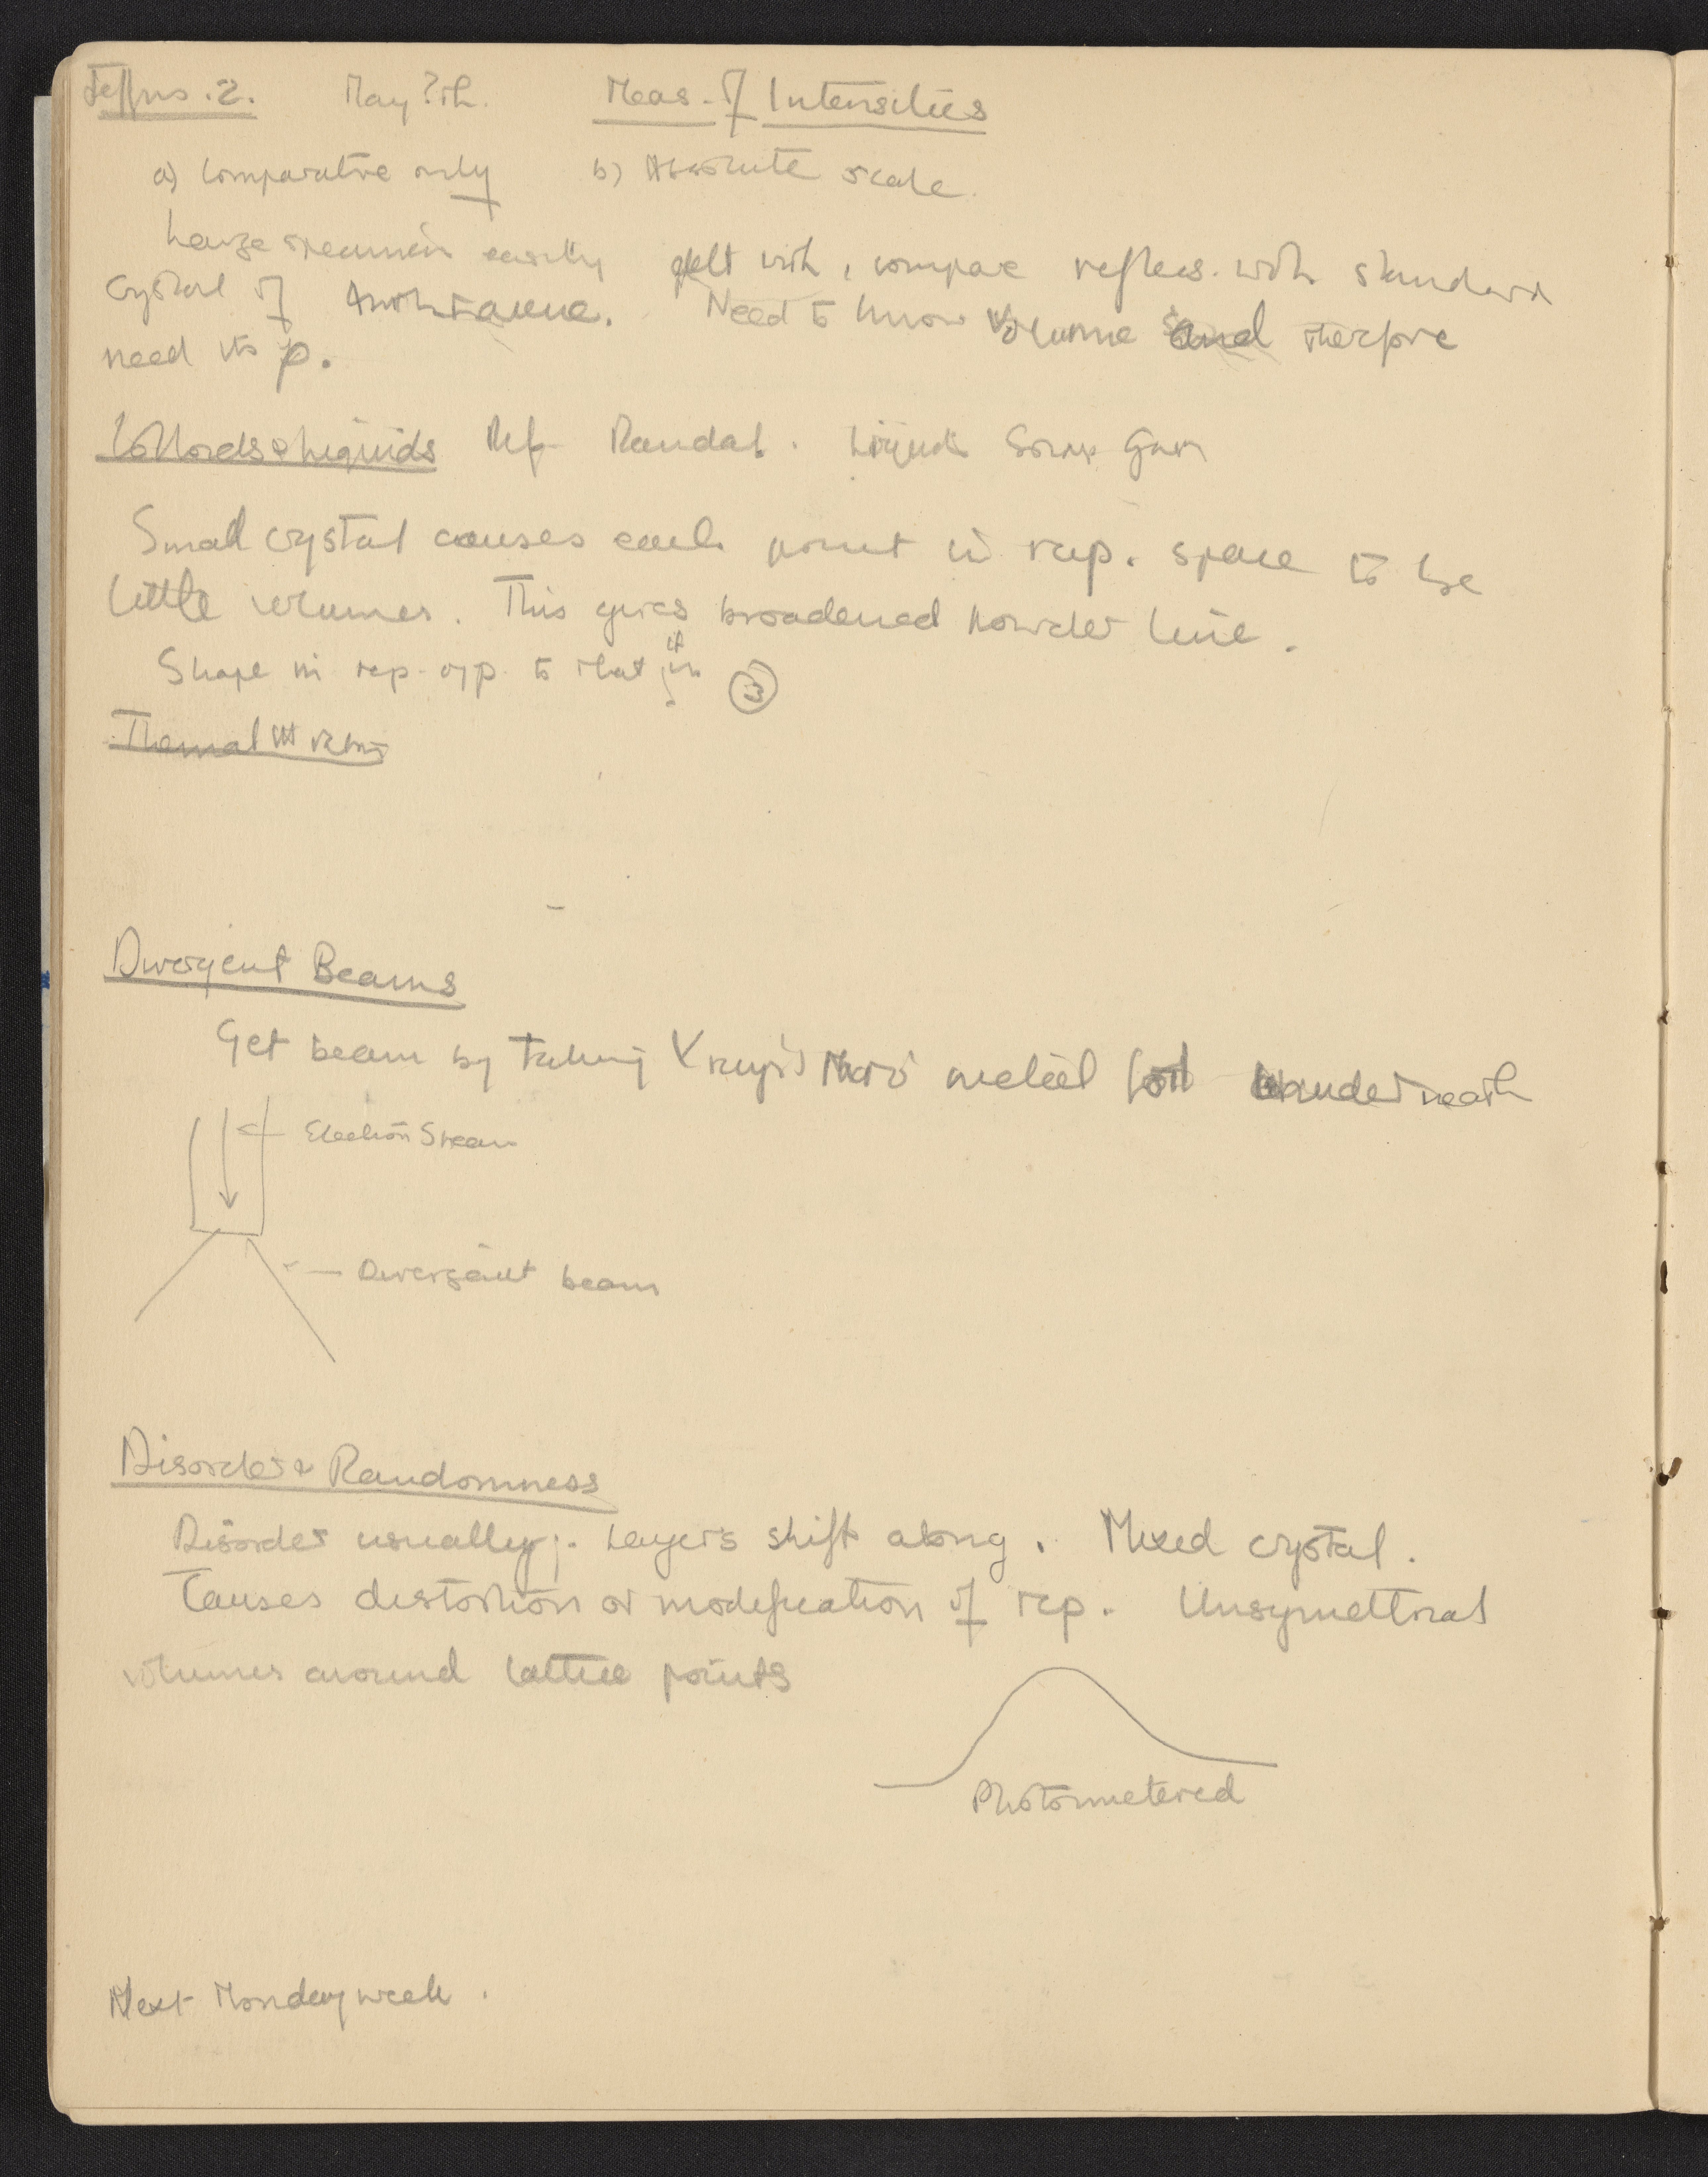 Jeffries. 2. May 7th. Meas. of Intensities
a) Comparative only b) Absolute scale.
Large specimen easily delt with, compare reflecs. with standard
crystal of Anthracene. Need to know volume and therfore
need its ρ.
Colloids & Liquids Ref Randal. Liquids
Small crystal causes each point in rcp. space to be
little volumes. This gives broadened powder line.
Shape in rcp. opp. to that of
Thermal
Divergent Beams
Get beam by taking X rays metal foil underneath
Electron Stream
Divergent beam
Disorder & Randomness
Disorder usually;. Layers shift along. Mixed crystal.
Causes distortion or modification of rcp. Unsymettrical
volumes around lattice points
Photometered
Next Monday week.